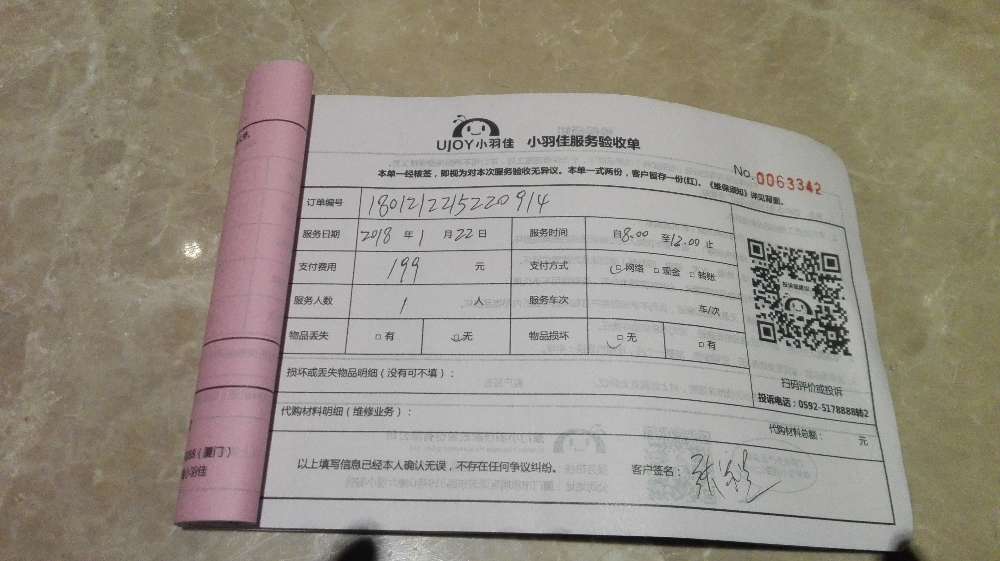 UJOY小羽佳 小羽佳服务验收单
No.0063342
本单一经核签，即视为对本次服务验收无异议。本单一式两份，客户留存一份(红)。《维保须知》详见背面。
订单编号 180121225220914
服务日期 2018 年 1 月 22 日 服务时间 自8.00 至12.00 止
支付费用 199 元 支付方式 □网络 □现金 □转账
服务人数 1 人 服务车次 车/次
物品丢失 □有 □无 物品损坏 □无 □有
扫码评价或投诉
投诉电话：0592-5178888转2
损坏或丢失物品明细（没有可不填）：
代购材料明细（维修业务）： 代购材料总额： 元
以上填写信息已经本人确认无误，不存在任何争议纠纷。 客户签名：
（厦门）
小羽佳